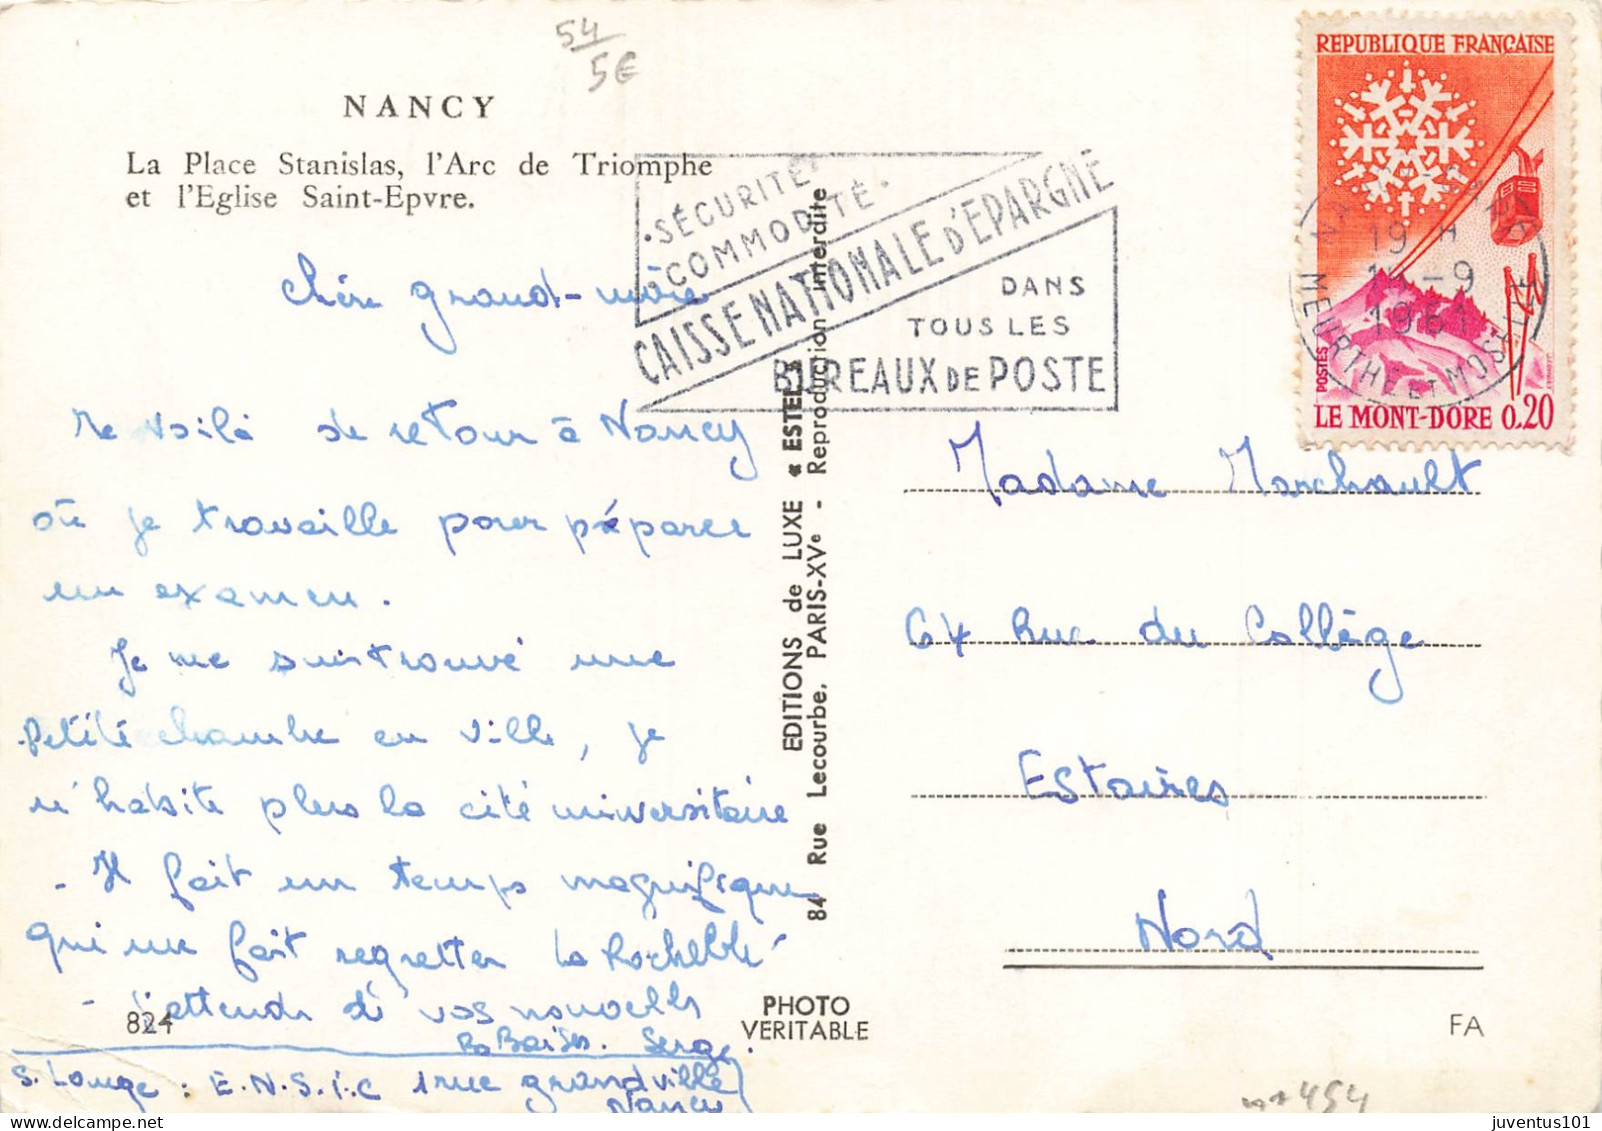 54
5€
NANCY
La Place Stanislas, l'Arc de Triomphe
et l'Eglise Saint-Epvre.
Chère grand-mère
Me voilà de retour à Nancy
où je travaille pour préparer
un examen.
Je me suis trouvé une
petite chambre en ville, je
n'habite plus la cité universitaire
- Il fait un temps magnifique
qui me fait regretter la Rochelle
- J'attends de vos nouvelles
824
Bs Baisers. Serge.
S. Louge : E.N.S.I.C 1 rue grandville
Nancy
EDITIONS de LUXE « ESTEL »
84 Rue Lecourbe, PARIS-XVe - Reproduction interdite
PHOTO
VERITABLE
• SÉCURITÉ
• COMMODITÉ •
CAISSE NATIONALE D'EPARGNE
DANS
TOUS LES
BUREAUX DE POSTE
REPUBLIQUE FRANÇAISE
POSTES
LE MONT-DORE 0,20
19 H
-9
1961
MEURTHE ET MOSELLE
Madame Marchault
64 Rue du Collège
Estaires
Nord
FA
454
juventus101